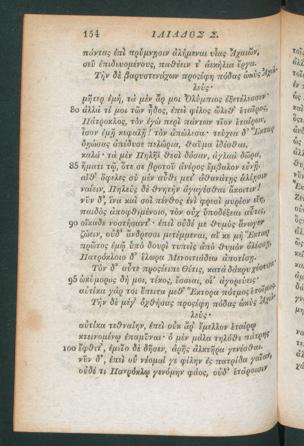 154 ΙΛΙΑΔΟΣ Σ.
πάντας ἐπὶ πρύμνῃσιν ἀλήμεναι υἷας Ἀχαιῶν,
σεῦ ἐπιδευομένους, παθέειν τ' ἀεκήλια ἔργα.
Τὴν δὲ βαρυστενάχων προσέφη πόδας ὠκὺς Ἀχιλ-
λεύς·
μῆτερ ἐμή, τὰ μὲν ἄρ μοι Ὀλύμπιος ἐξετέλεσσεν·
80 ἀλλὰ τί μοι τῶν ἦδος, ἐπεὶ φίλος ὤλεθ' ἑταῖρος,
Πάτροκλος, τὸν ἐγὼ περὶ πάντων τῖον ἑταίρων,
ἶσον ἐμῇ κεφαλῇ! τὸν ἀπώλεσα· τεύχεα δ' Ἕκτωρ
δῃώσας ἀπέδυσε πελώρια, θαῦμα ἰδέσθαι,
καλά· τὰ μὲν Πηλῆϊ θεοὶ δόσαν, ἀγλαὰ δῶρα,
85 ἤματι τῷ, ὅτε σε βροτοῦ ἀνέρος ἔμβαλον εὐνῇ.
αἴθ' ὄφελες σὺ μὲν αὖθι μετ' ἀθανάτῃς ἁλίῃσιν
ναίειν, Πηλεὺς δὲ θνητὴν ἀγαγέσθαι ἄκοιτιν!
νῦν δ', ἵνα καὶ σοὶ πένθος ἐνὶ φρεσὶ μυρίον εἴη,
παιδὸς ἀποφθιμένοιο, τὸν οὐχ ὑποδέξεαι αὖτις,
90 οἴκαδε νοστήσαντ'· ἐπεὶ οὐδέ με θυμὸς ἄνωγεν
ζώειν, οὐδ' ἄνδρεσσι μετέμμεναι, αἴ κε μὴ Ἕκτωρ
πρῶτος ἐμῷ ὑπὸ δουρὶ τυπεὶς ἀπὸ θυμὸν ὀλέσσῃ,
Πατρόκλοιο δ' ἕλωρα Μενοιτιάδεω ἀποτίσῃ.
Τὸν δ' αὖτε προσέειπε Θέτις, κατὰ δάκρυ χέουσα·
95 ὠκύμορος δή μοι, τέκος, ἔσσεαι, οἷ' ἀγορεύεις·
αὐτίκα γάρ τοι ἔπειτα μεθ' Ἕκτορα πότμος ἑτοῖμος.
Τὴν δὲ μέγ' ὀχθήσας προσέφη πόδας ὠκὺς Ἀχιλ-
λεύς·
αὐτίκα τεθναίην, ἐπεὶ οὐκ ἄρ' ἔμελλον ἑταίρῳ
κτεινομένῳ ἐπαμῦναι· ὁ μὲν μάλα τηλόθι πάτρης
100 ἔφθιτ', ἐμεῖο δὲ δῆσεν, ἀρῆς ἀλκτῆρα γενέσθαι.
νῦν δ', ἐπεὶ οὐ νέομαί γε φίλην ἐς πατρίδα γαῖαν,
οὐδέ τι Πατρόκλῳ γενόμην φάος, οὐδ' ἑτάροισιν